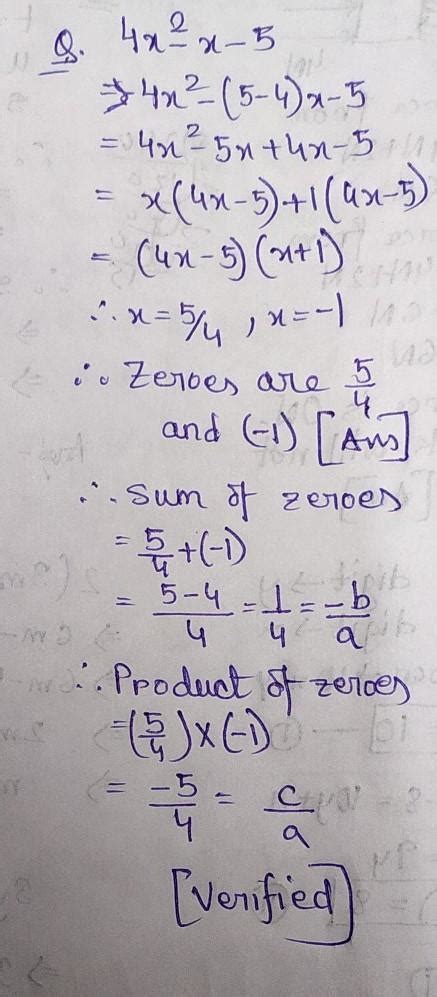 Q. 4x² - x - 5
⇒ 4x² - (5-4)x - 5
= 4x² - 5x + 4x - 5
= x(4x-5) + 1(4x-5)
= (4x-5)(x+1)
∴ x = 5/4 , x = -1
∴ Zeroes are 5/4
and (-1) [Ans]
∴ Sum of zeroes
= 5/4 + (-1)
= (5-4)/4 = 1/4 = -b/a
∴ Product of zeroes
= (5/4) × (-1)
= -5/4 = c/a
[Verified]